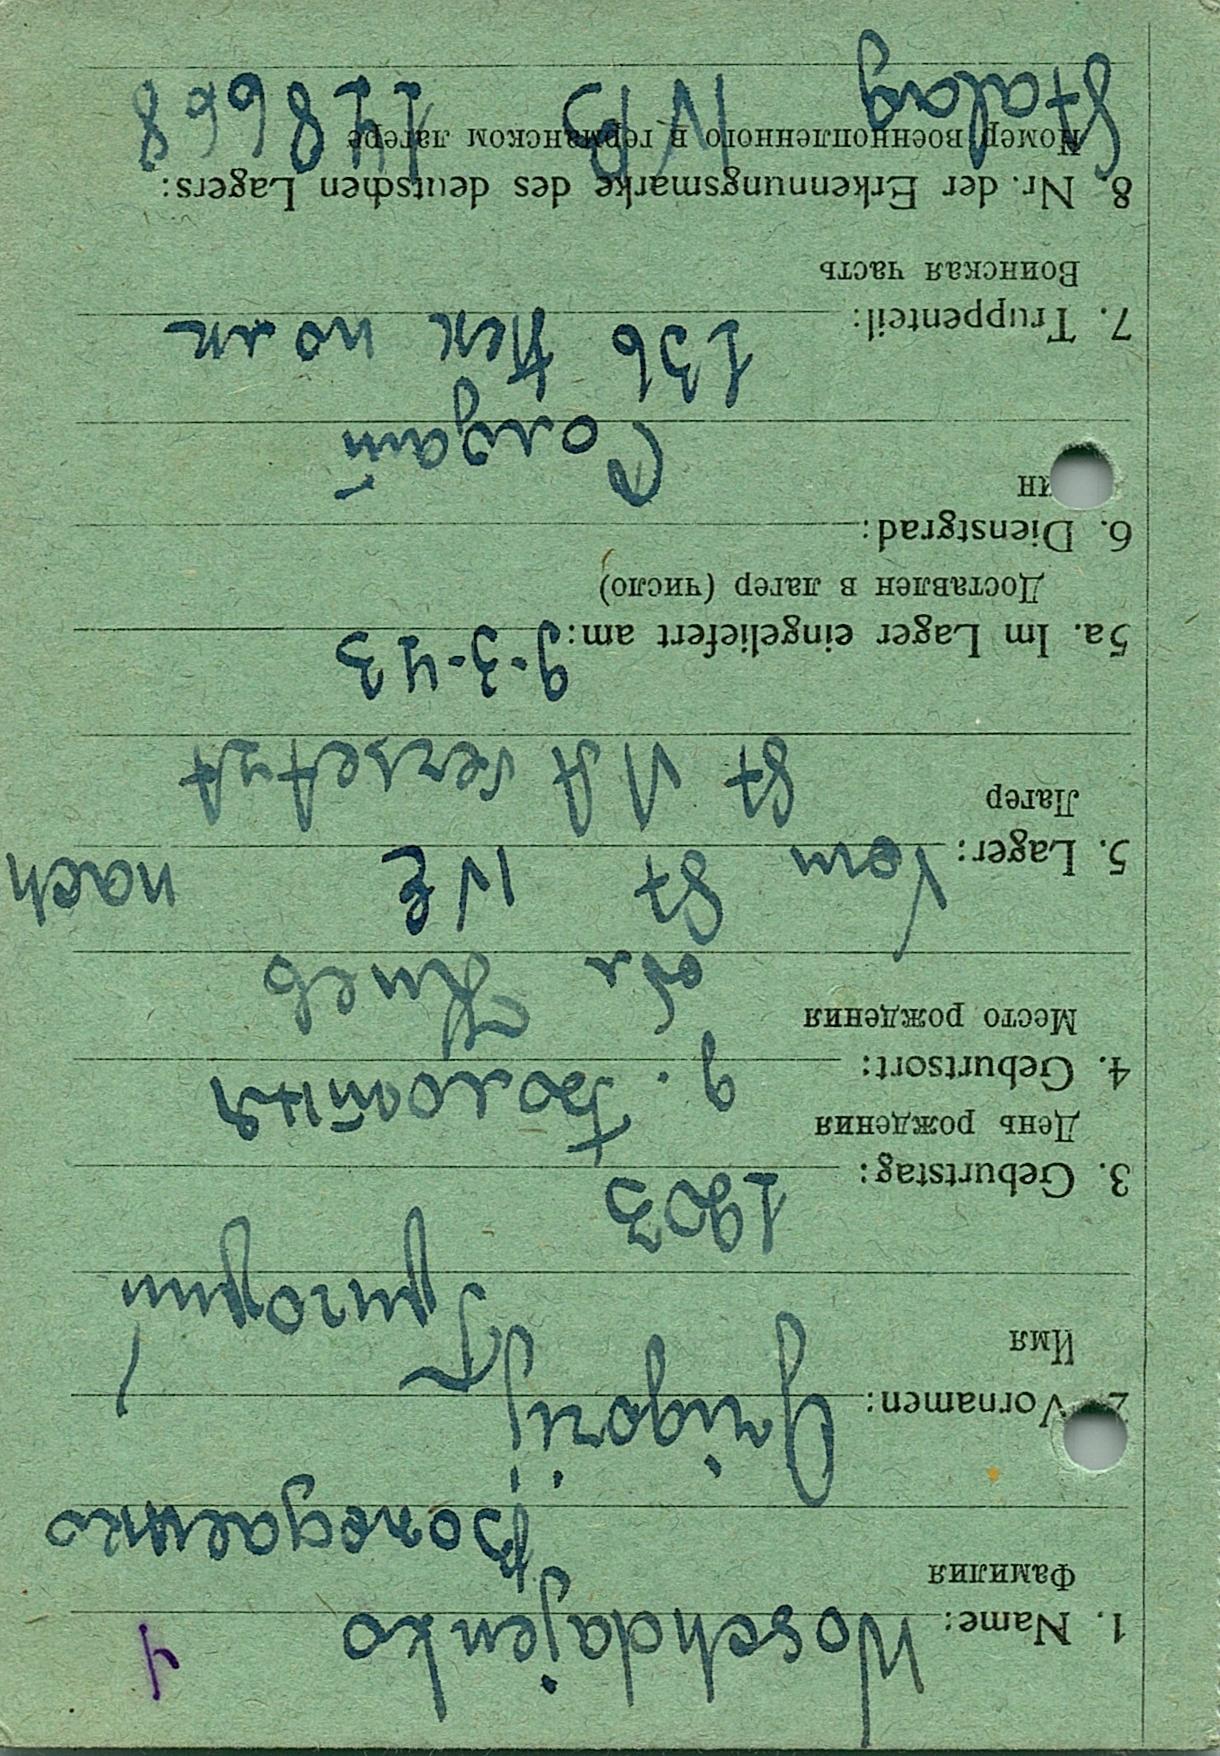 4
1. Name: Woschdajenko
Фамилия
Вождаенко
2. Vornamen: Grigorij
Имя
Григорий
3. Geburtstag: 1903
День рождения
4. Geburtsort: g. Болотня
Место рождения
обл Киев
5. Lager: Vom St IV E nach
Лагер
St VI A versetzt
5a. Im Lager eingeliefert am: 9-3-43
Доставлен в лагер (число)
6. Dienstgrad:
ин
Солдат
7. Truppenteil: 136 пех полк
Воинская часть
8. Nr. der Erkennungsmarke des deutschen Lagers:
Номер военнопленного в германском лагере
Stalag IV B